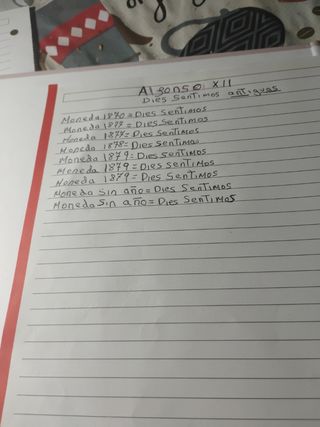 Alfonso XII
Dies Sentimos antiguas
Moneda 1870 = Dies Sentimos
Moneda 1877 = Dies Sentimos
Moneda 1877 = Dies Sentimos
Moneda 1878 = Dies Sentimos
Moneda 1879 = Dies Sentimos
Moneda 1879 = Dies Sentimos
Moneda 1879 = Dies Sentimos
Moneda Sin año = Dies Sentimos
Moneda Sin año = Dies Sentimos